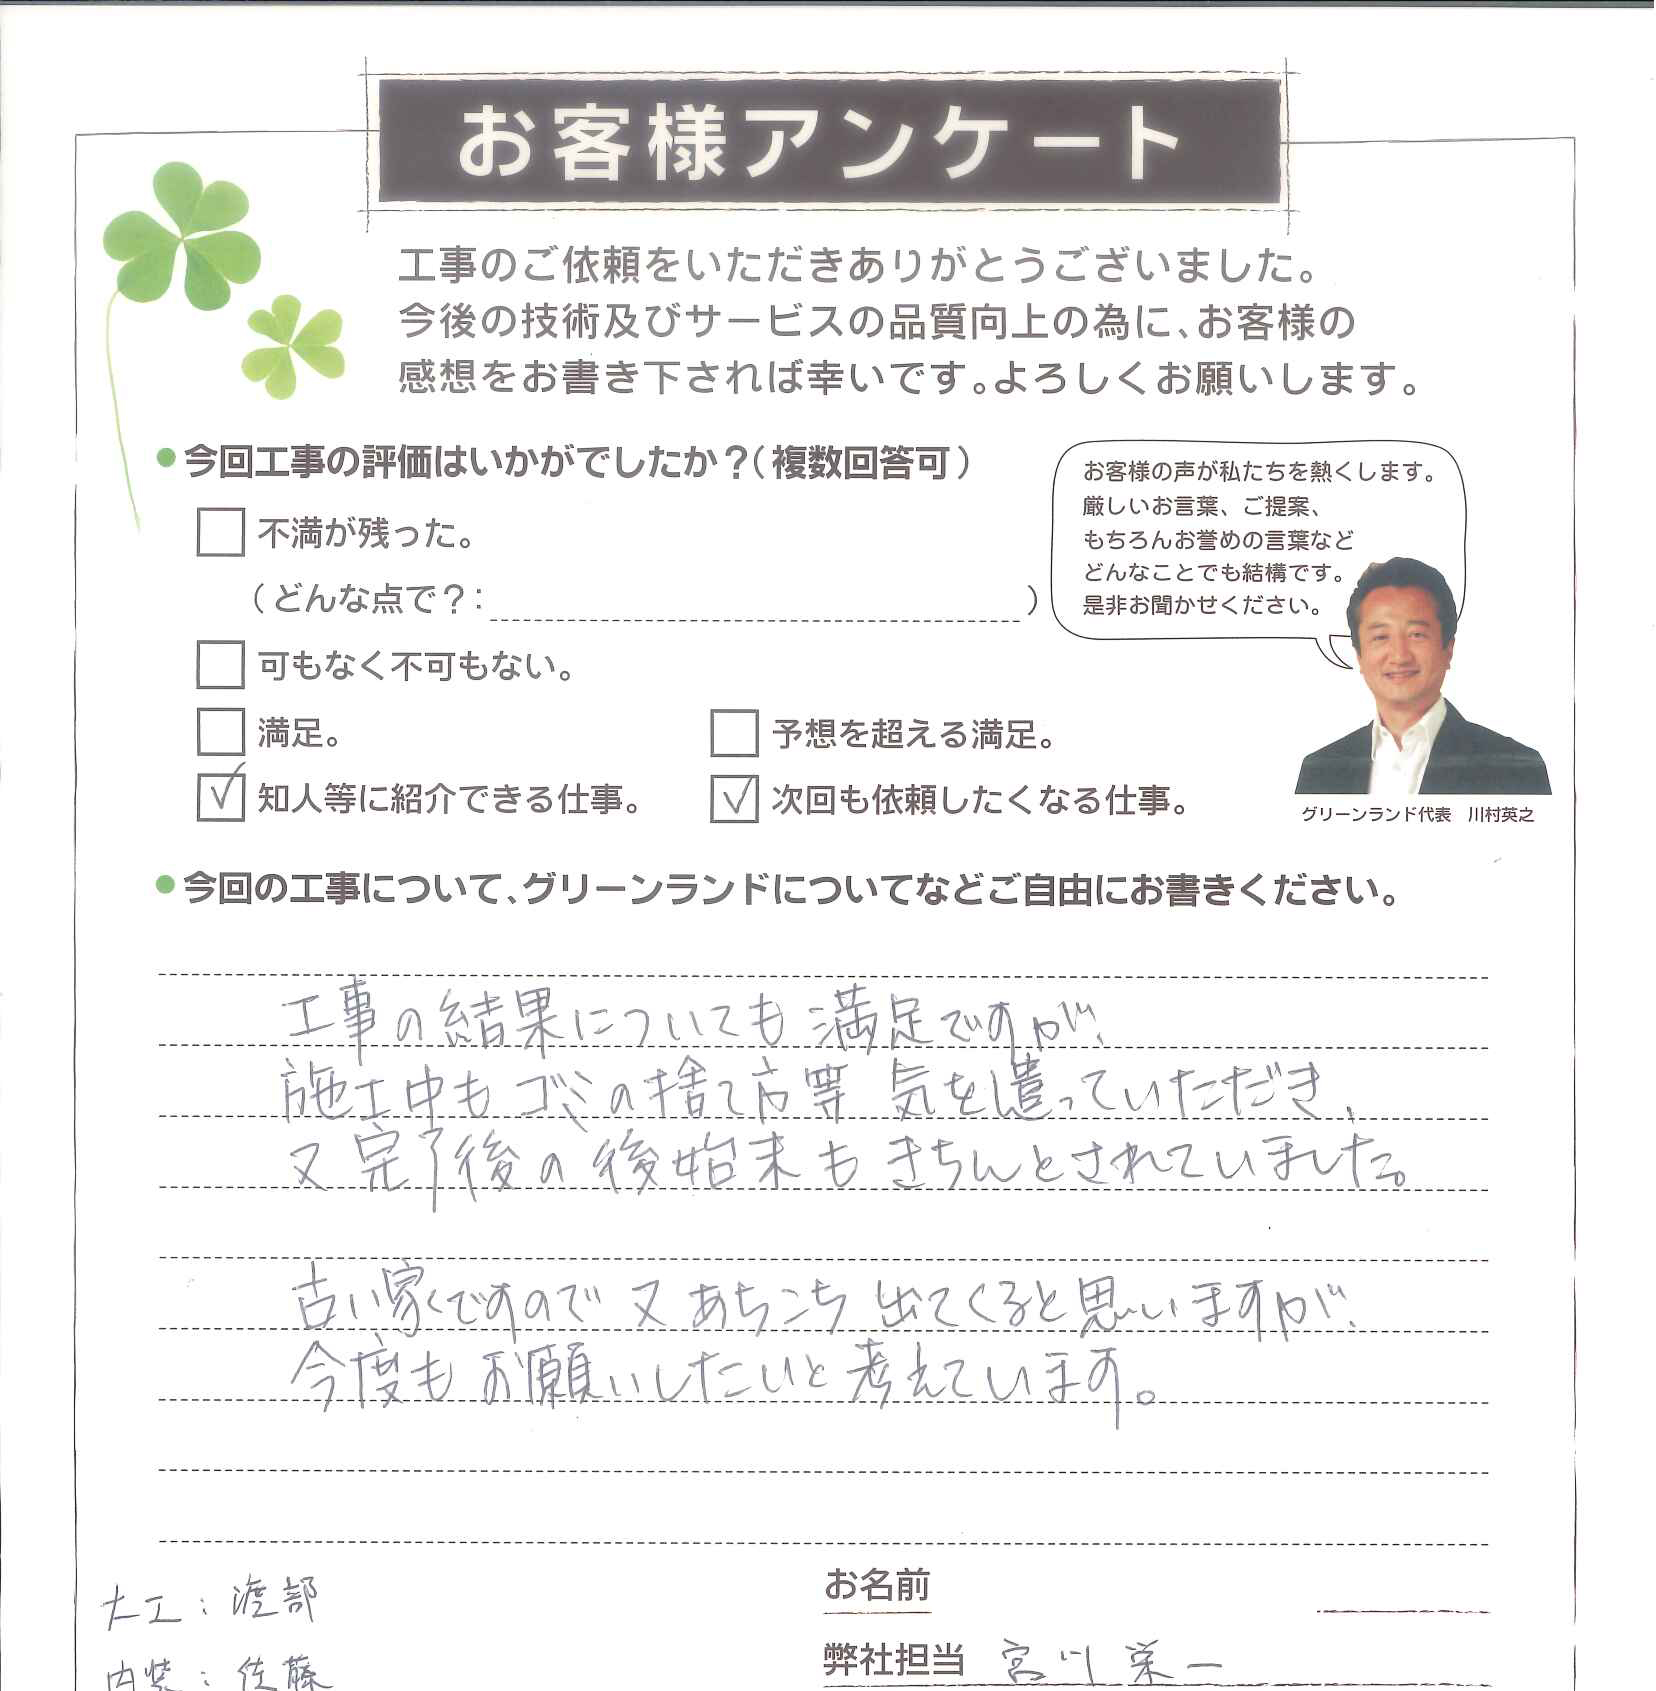 お客様アンケート
工事のご依頼をいただきありがとうございました。
今後の技術及びサービスの品質向上の為に、お客様の
感想をお書き下されば幸いです。よろしくお願いします。
●今回工事の評価はいかがでしたか？（複数回答可）
不満が残った。
（どんな点で？： ）
可もなく不可もない。
満足。
予想を超える満足。
知人等に紹介できる仕事。
次回も依頼したくなる仕事。
お客様の声が私たちを熱くします。
厳しいお言葉、ご提案、
もちろんお誉めの言葉など
どんなことでも結構です。
是非お聞かせください。
グリーンランド代表　川村英之
●今回の工事について、グリーンランドについてなどご自由にお書きください。
工事の結果についても満足ですが、
施工中もゴミの捨て方等 気を遣っていただき、
又完了後の後始末もきちんとされていました。
古い家ですので又あちこち出てくると思いますが、
今度もお願いしたいと考えています。
大工：渡部
内装：佐藤
お名前
弊社担当 宮川栄一